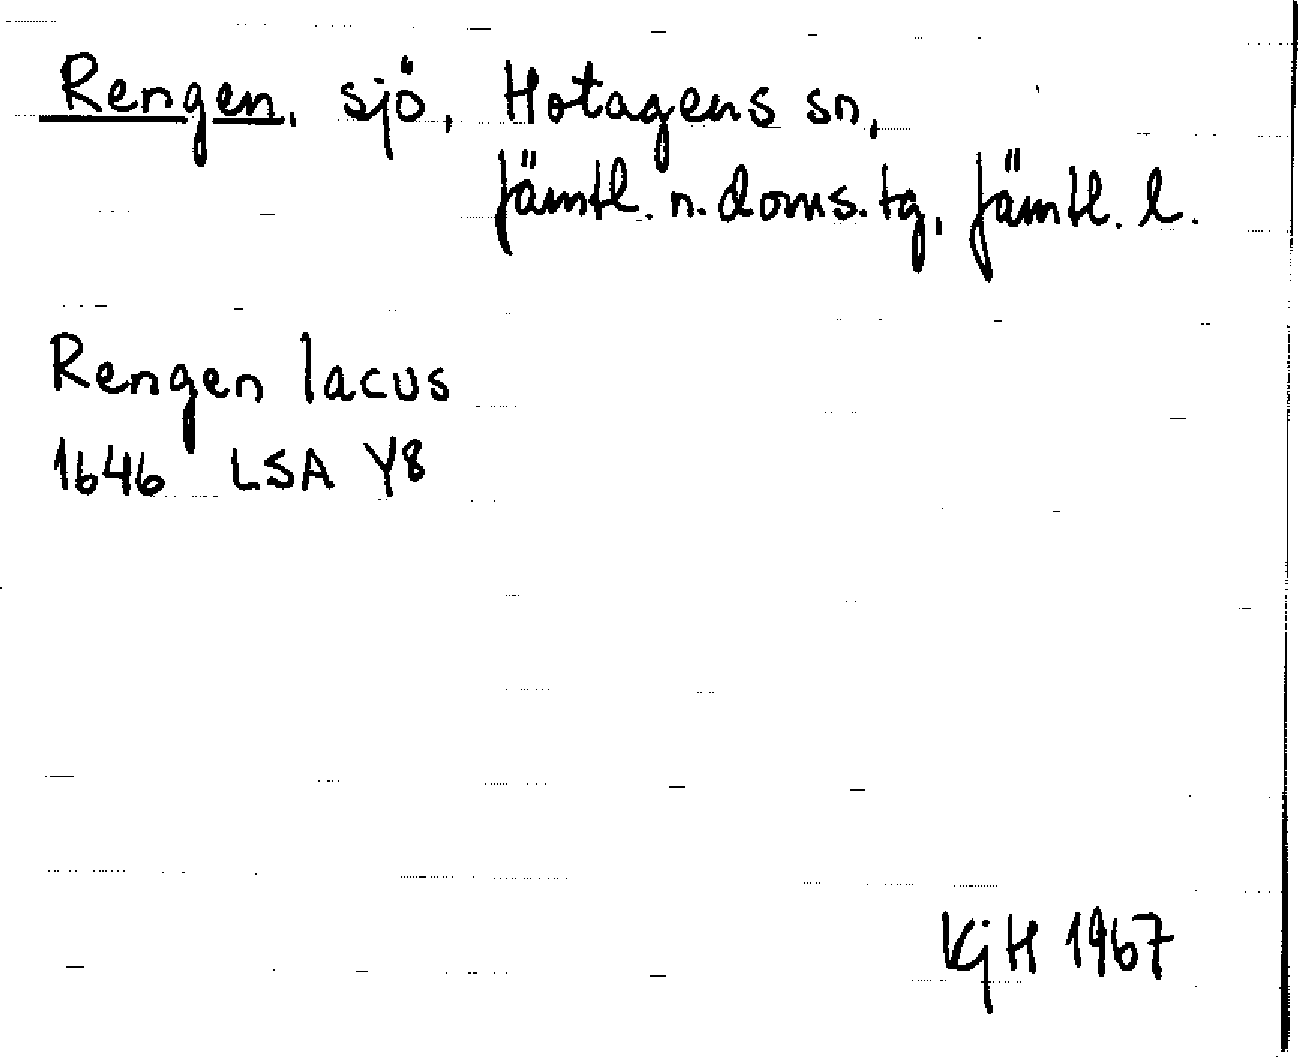 Rengen, sjö, Hotagens sn,
Jämtl. n. doms. tg, Jämtl. l.
Rengen lacus
1646 LSA Y8
KjH 1967